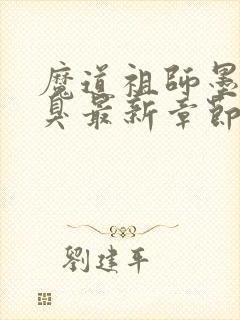 魔道祖師墨
臭最新章節
劉建平